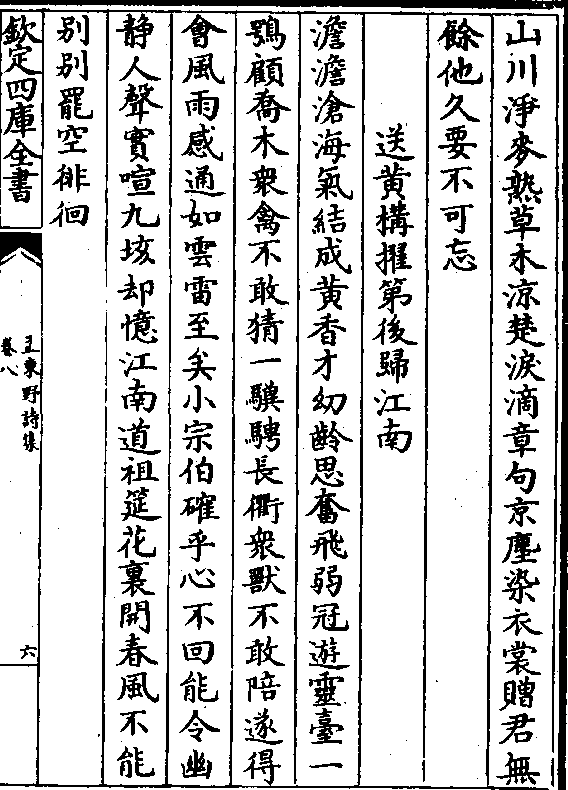 山川淨麥熟草木涼楚淚滴章句京塵染衣裳贈君無
餘他久要不可忘
送黄構擢第後歸江南
澹澹滄海氣結成黄香才幼齡思奮飛弱冠遊靈臺一
鶚顧喬木衆禽不敢猜一驥騁長衢衆獸不敢陪遂得
會風雨感通如雲雷至矣小宗伯確乎心不回能令幽
静人聲實喧九垓却憶江南道祖筵花裏開春風不能
别别罷空徘徊
欽定四庫全書
孟東野詩集
卷八
六